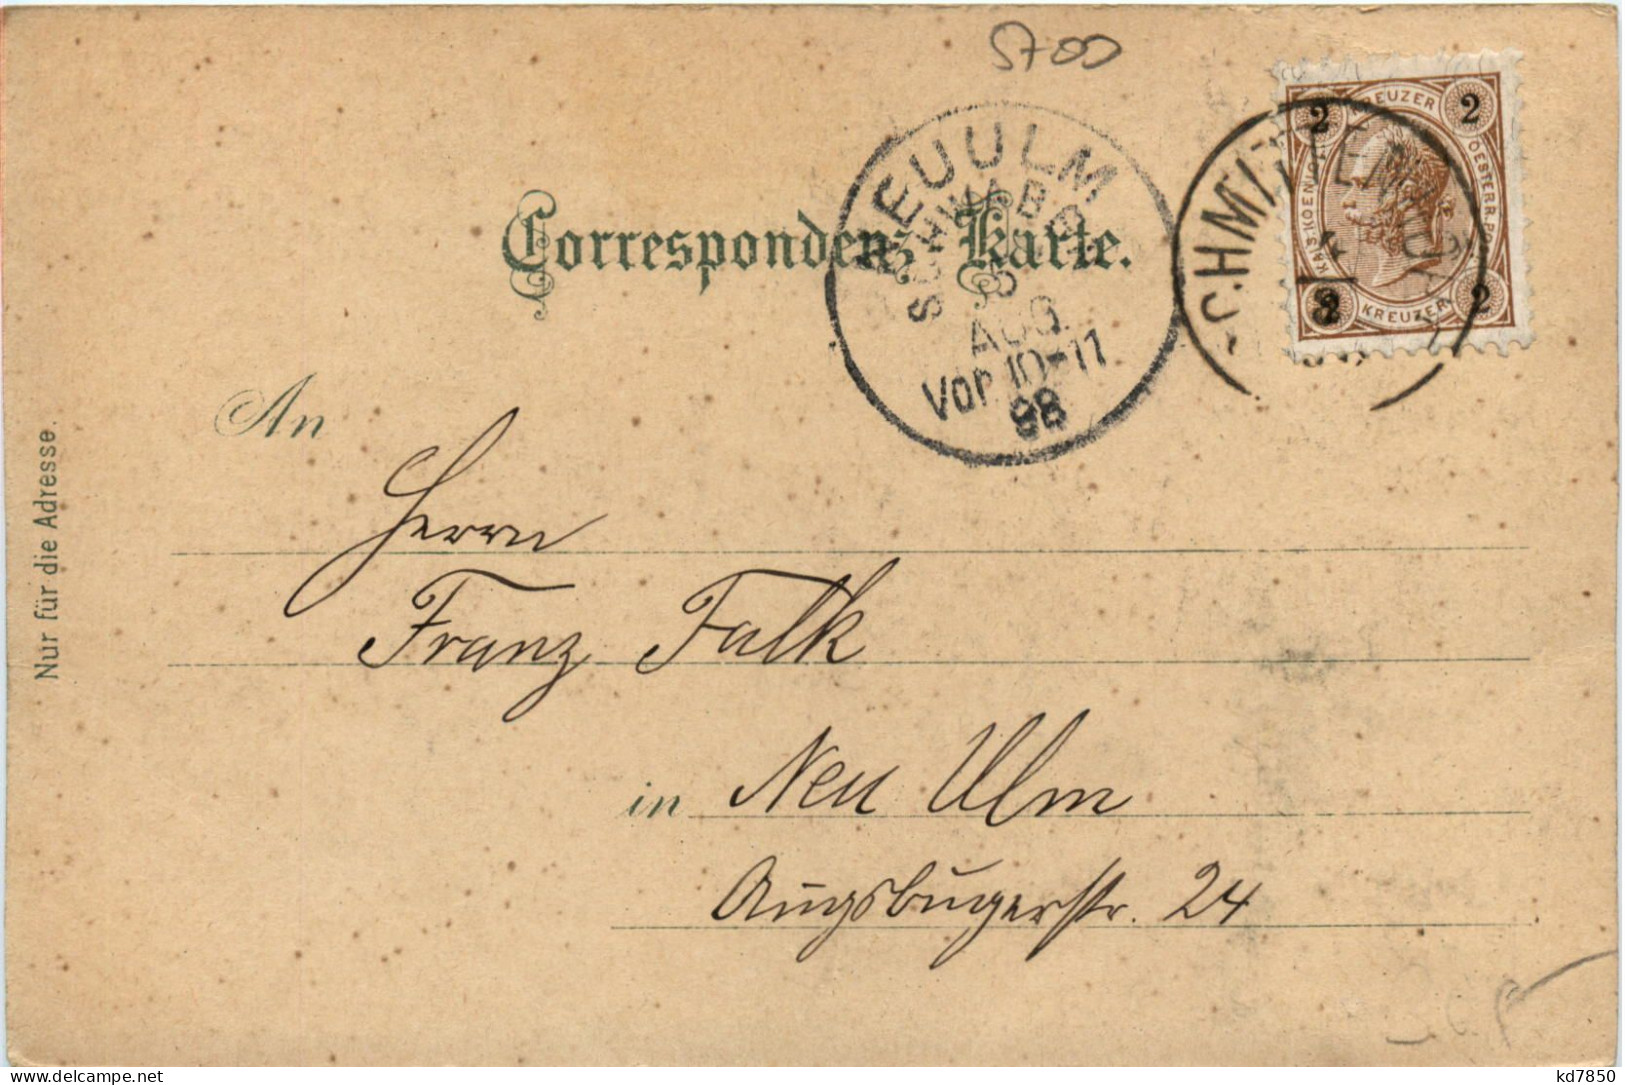 5700
NEUULM
SCHWABEN
AUG.
Vor. 10-11
98
SCHMITTEN
2 KREUZER 2
KAIS. KOENIGL. OESTERR. POST
2 KREUZER 2
Correspondenz-Karte.
An
Herrn
Franz Falk
in Neu Ulm
Augsbugerstr. 24
Nur für die Adresse.
kd7850